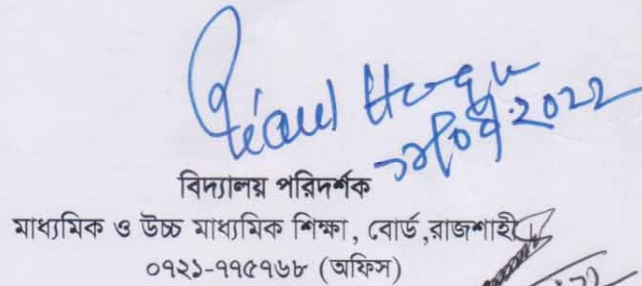 Ziaul Hoque
বিদ্যালয় পরিদর্শক
মাধ্যমিক ও উচ্চ মাধ্যমিক শিক্ষা, বোর্ড,রাজশাহী
০৭২১-৭৭৫৭৬৮ (অফিস)